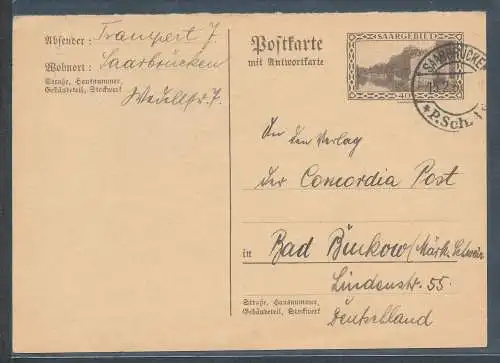 Absender: Trampert J.
Wohnort: Saarbrücken
Straße, Hausnummer,
Gebäudeteil, Stockwerk
Postkarte
mit Antwortkarte
SAARGEBIET
40
SAARBRÜCKEN
P.Sch.
An den Verlag
der Concordia Post
in Bad Buckow/Märk. Schweiz
Lindenstr. 55.
Straße, Hausnummer,
Gebäudeteil, Stockwerk
Deutschland